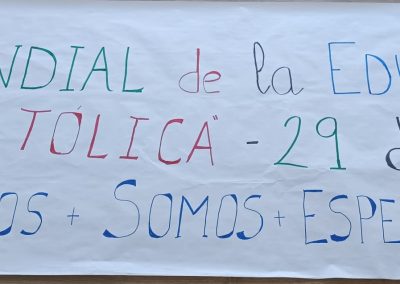 NDIAL de la EDU
TÓLICA" - 29 d
OS + SOMOS + ESPE